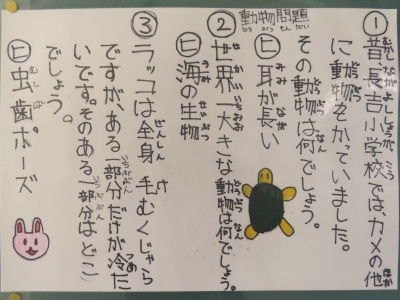 動物問題
① 昔長吉小学校では、カメの他
に動物をかっていました。
その動物は何でしょう。
㋪ 耳が長い
② 世界一大きな動物は何でしょう。
㋪ 海の生物
③ ラッコは全身毛むくじゃら
ですが、ある一部分だけが冷た
いです。そのある一部分はどこ
でしょう。
㋪ 虫歯ポーズ